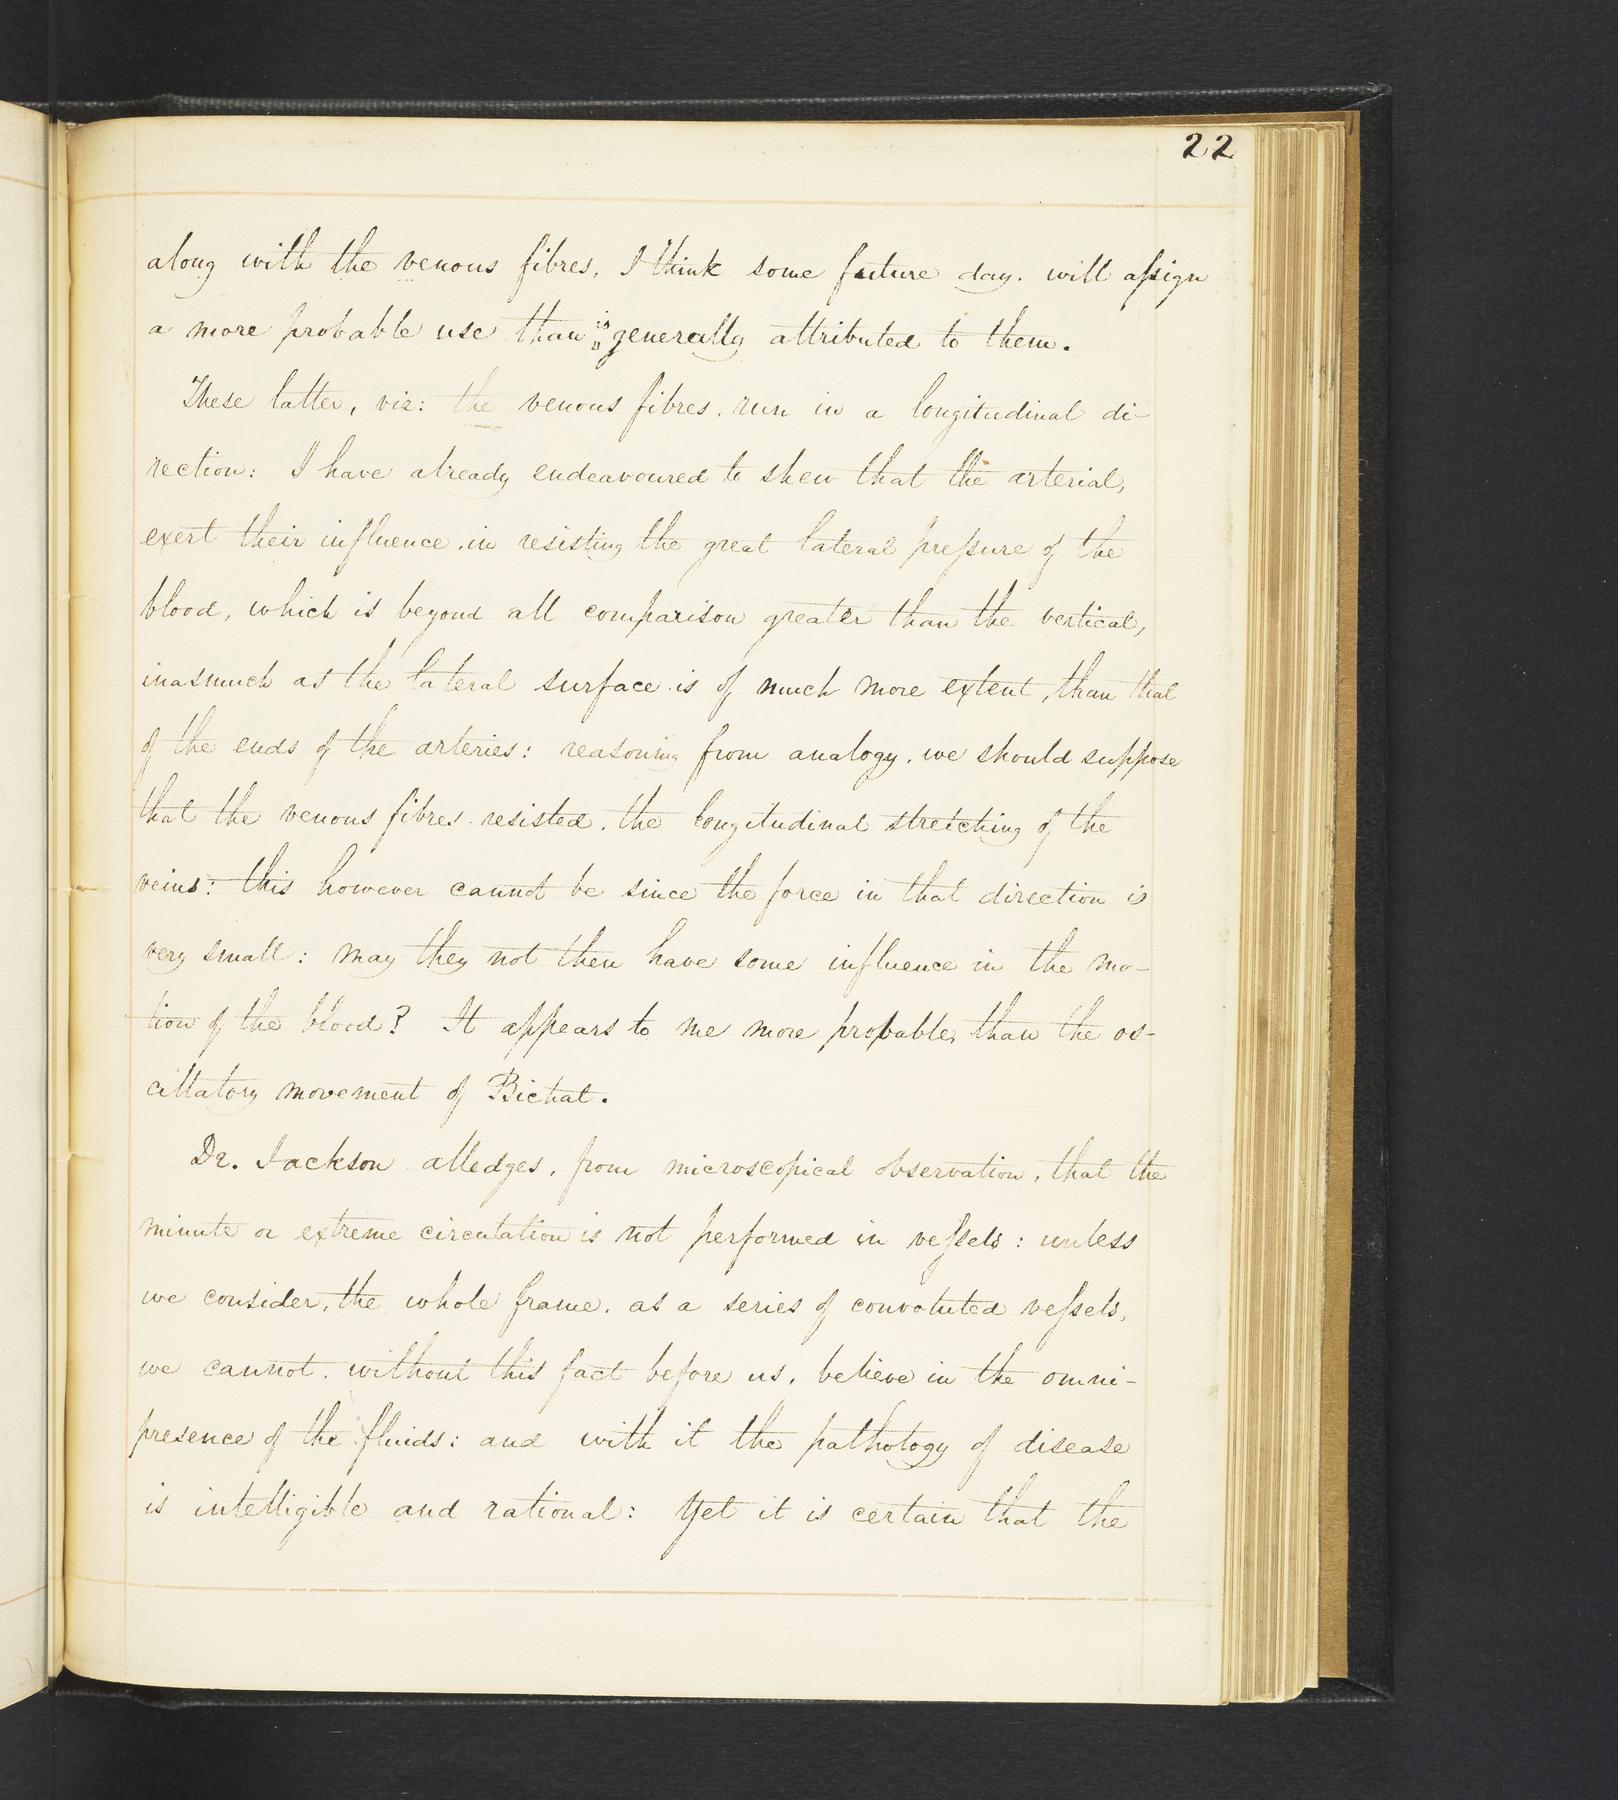 22
along with the venous fibres, I think some future day. will assign
a more probable use than is generally attributed to them.
These latter, viz: the venous fibres. run in a longitudinal di-
rection: I have already endeavoured to shew that the arterial,
exert their influence, in resisting the great lateral pressure of the
blood, which is beyond all comparison greater than the vertical,
inasmuch as the lateral surface is of much more extent, than that
of the ends of the arteries: reasoning from analogy, we should suppose
that the venous fibres resisted, the longitudinal stretching of the
veins: this however cannot be since the force in that direction is
very small: may they not then have some influence in the mo-
tion of the blood? It appears to me more probable, than the os-
cillatory movement of Bichat.
Dr. Jackson alledges, from microscopical observation, that the
minute or extreme circulation is not performed in vessels: unless
we consider, the whole frame, as a series of convoluted vessels,
we cannot, without this fact before us, believe in the omni-
presence of the fluids: and with it the pathology of disease
is intelligible and rational: Yet it is certain that the